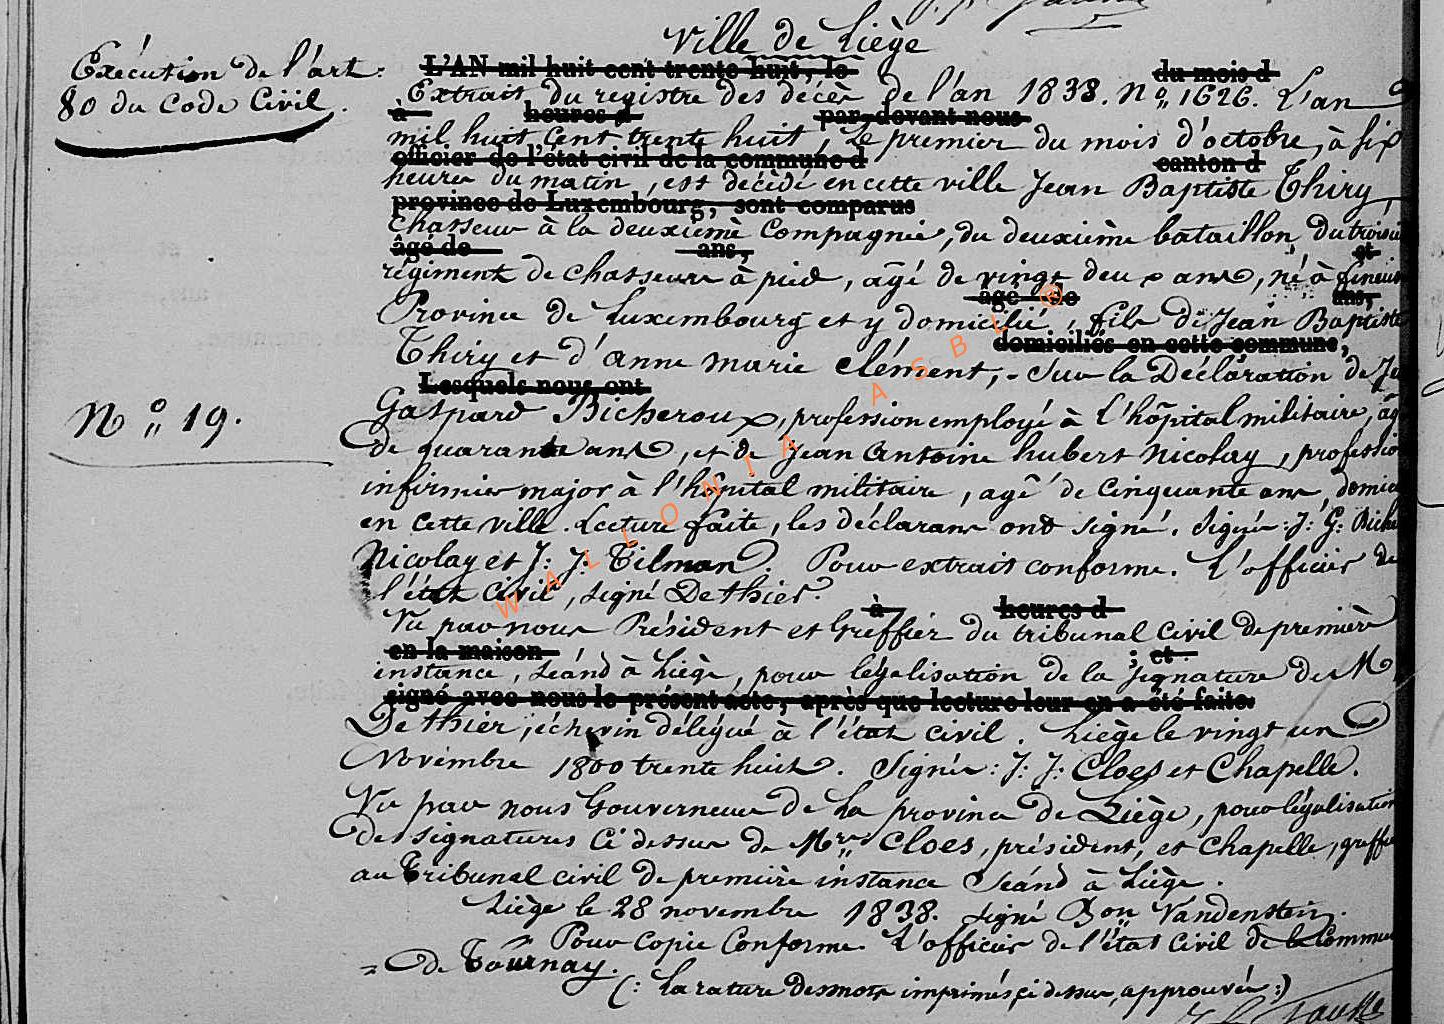 Ville de Liège
Exécution de l'art.
80 du Code Civil.
L'AN mil huit cent trente huit, le du mois d
Extrait du registre des décès de l'an 1838. N° 1626. L'an
à heures d par-devant nous
mil huit cent trente huit, le premier du mois d'octobre, à six
officier de l'état civil de la commune d canton d
heures du matin, est décédé en cette ville Jean Baptiste Thiry,
province de Luxembourg, sont comparus
chasseur à la deuxième compagnie, du deuxième bataillon du
âgé de ans, et
régiment de chasseurs à pied, âgé de vingt deux ans, né à
âgé de ans,
Province de Luxembourg et y domicilié, fils de Jean Baptiste
domiciliés en cette commune,
Thiry et d'anne marie clément, - Sur la Déclaration de
Lesquels nous ont
N° 19.
Gaspard Bicheroux, profession employé à l'hôpital militaire, âg
de quarante ans, et de Jean Antoine hubert Nicolay, professio
infirmier major à l'hôpital militaire, agé de cinquante ans, domic
en cette ville. Lecture faite, les déclarans ont signé. Signés: J: G: Biche
Nicolay et J: J: Tilman. Pour extrait conforme. L'officier de
l'état Civil, signé De thier.
à heures d
Vu par nous Président et Greffier du tribunal civil de première
en la maison ; et
instance, séand à Liège, pour légalisation de la signature de M
signé avec nous le présent acte, après que lecture leur en a été faite.
De thier, échevin délégué à l'état civil. Liège le vingt un
Novembre 1800 trente huit. Signés: J: J: Cloes et Chapelle.
Vu par nous Gouverneur de la province de Liège, pour légalisation
des signatures ci dessus de Mrs Cloes, président, et Chapelle, greffie
au Tribunal civil de première instance séand à Liège.
Liège le 28 novembre 1838. Signé Bon Vandenstein.
Pour copie Conforme. L'officier de l'état civil de la Commu
= de Tournay.
(: La rature des mots imprimés ci dessus, approuvée :)
WALLONIA ASBL ®